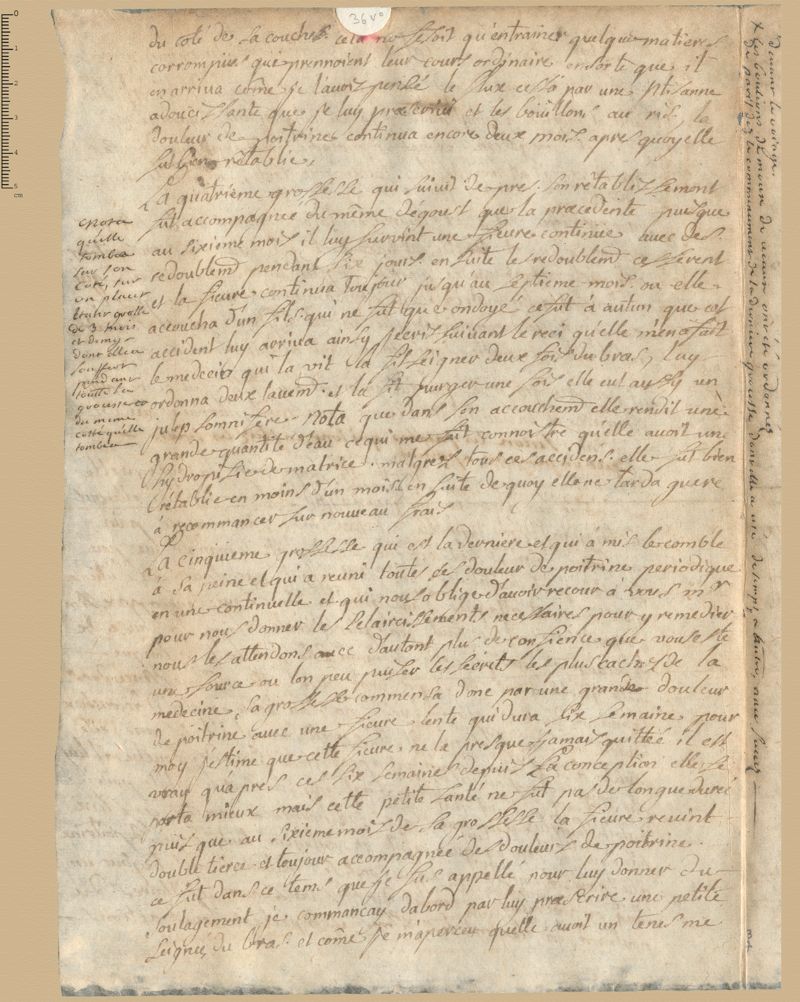 36 vo
du coté de la couche. cela ne faisoit qu'entrainer quelque matieres
corrompües qui prennoient leur cours ordinaire ensorte que il
en arriva côme je l'avois pensé le flux cessa par une ptisanne
adoucissante que je luy præscrivis et les bouillons au ris, la
douleur de poitrine continua encore deux mois. apres quoy elle
fut bien rétablie.
La quatrieme grossesse qui suivit de pres son rétablissement
fut accompagnée du même dégoust que la præcedente puisque
au sixieme mois il luy survint une fievre continue avec des
redoublemt pendant six jours. ensuite le redoublemt cesserent
et la fievre continua toujour jusqu'au septieme mois ou elle
accoucha d'un fils qui ne fut que ondoyé ce fut à autun que cet
accident luy arriva ainsy j'ecris suivant le reci qu'elle m'en a fait
le medecin qui la vit la fit seigner deux fois du bras, luy
ordonna deux lavemt et la fit purger une fois elle eut aussy un
julep somnifere. Nota que dans son accouchemt elle rendit une
grande quantité d'eau ce qui me fait connoistre qu'elle avoit un
hydropisie de matrice. malgrez tous ces accidens. elle fut bien
rétablie en moins d'un mois en suite de quoy elle ne tarda guere
à recommancer sur nouveau frais
La cinquieme grossesse qui est la derniere et qui à mis le comble
à sa peine et qui a reuni toutes ces douleur de poitrine periodique
en une continuelle et qui nous oblige d'avoir recour à vous mr
pour nous donner les éclaircissements necessaires pour y remedier
nous les attendons avec d'autant plus de confience que vous ete
une source ou lon peu puiser les secrets les plus cachés de la
medecine, sa grossesse commensa donc par une grande douleur
de poitrine avec une fievre lente qui dura six semaine pour
moy j'estime que cette fievre ne la presque jamais quittée il est
vray qu'apres ces six semaines depuis la conception elle se
porta mieux mais cette petite santé ne fut pas de longue dureé
puis que au sixieme mois de sa grossesse la fievre revint
double tierce et toujour accompagnée des douleurs de poitrine.
ce fut dans ce tems que je fus appellé pour luy donner du
soulagement je commancay dabord par luy præscrire une petite
seignée du bras. et côme je m'aperceu qu'elle avoit un tenesme
nota
qu'elle
tomba
sur son
coté, sur
un placer
etant qu'elle
de 3 mois
et demy
dont elle a
souffert
pendant
toute la
grossesse
du meme
cotté qu'elle
tomba